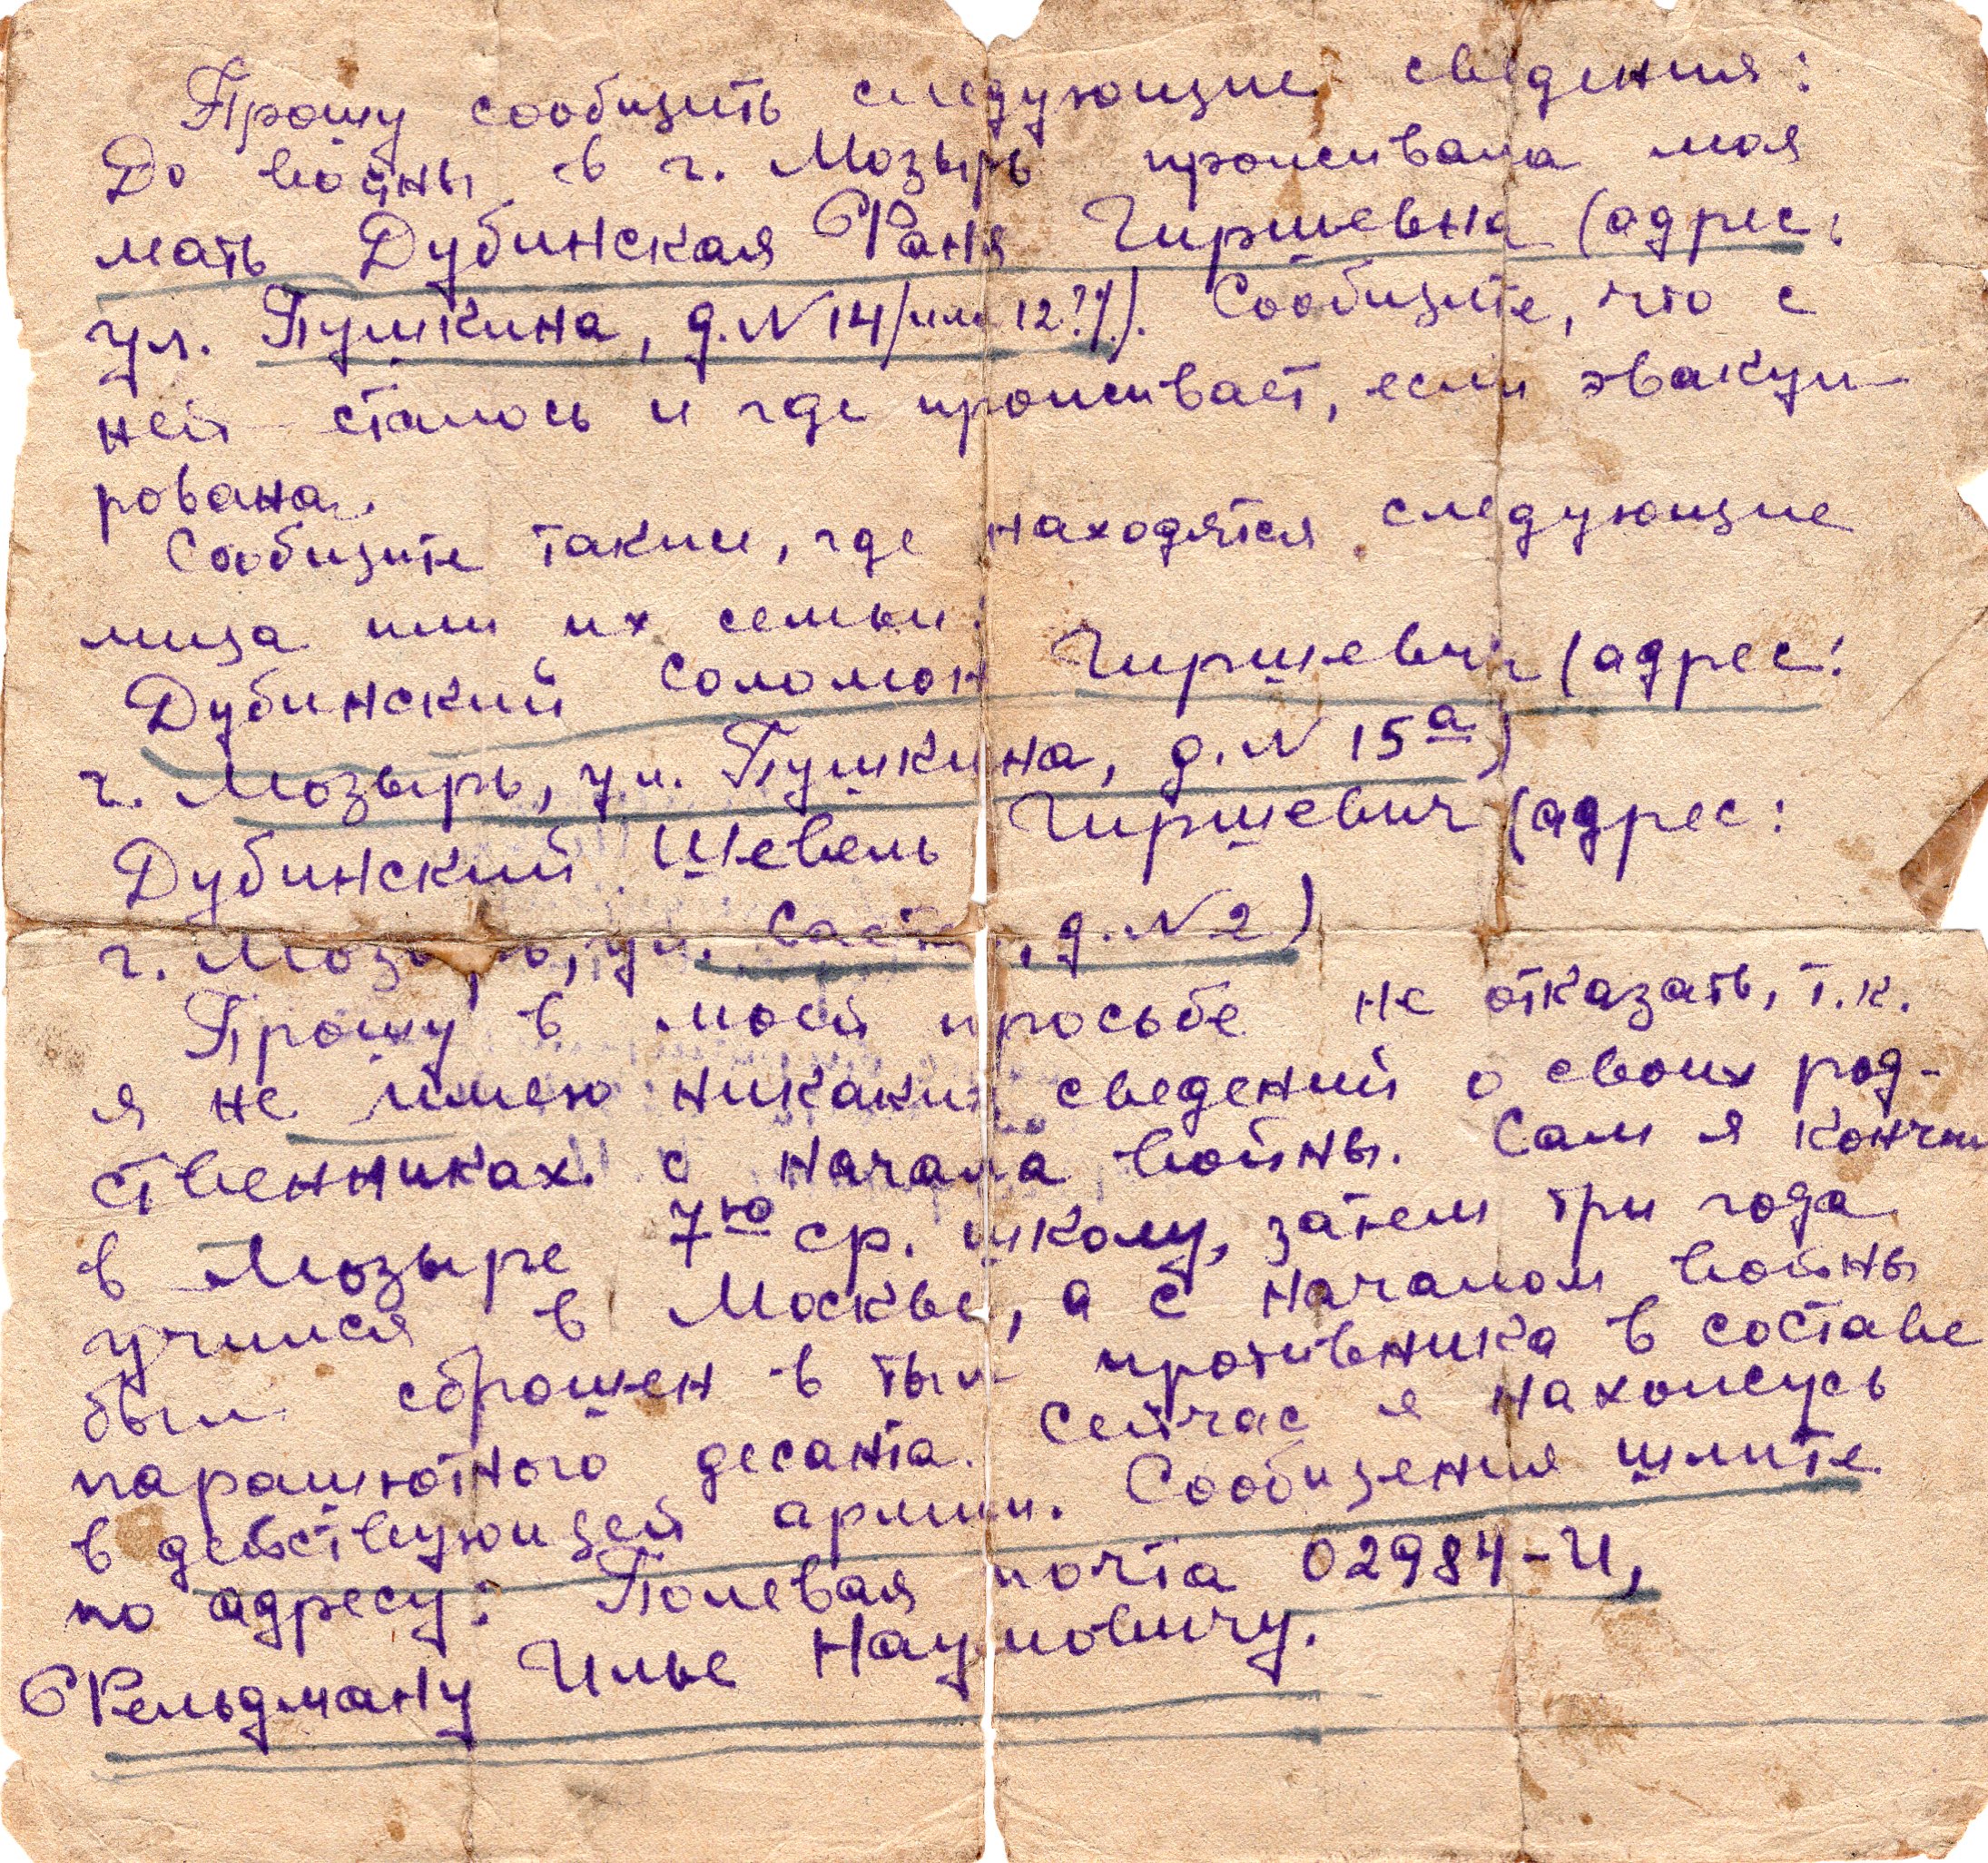 Прошу сообщить следующие сведения:
До войны в г. Мозырь проживала моя
мать Дубинская Фаня Гиршевна (адрес:
ул. Пушкина, д. N 14 /или 12?/). Сообщите, что с
ней сталось и где проживает, если эвакуи-
рована.
Сообщите также, где находятся следующие
лица или их семьи:
Дубинский Соломон Гиршевич (адрес:
г. Мозырь, ул. Пушкина, д. N 15а)
Дубинский Шевель Гиршевич (адрес:
г. Мозырь, ул. , д. N 2)
Прошу в моей просьбе не отказать, т.к.
я не имею никаких сведений о своих род-
ственниках с начала войны. Сам я кончил
в Мозыре 7ю ср. школу, затем три года
учился в Москве, а с началом войны
был сброшен в тыл противника в составе
парашютного десанта. Сейчас я нахожусь
в действующей армии. Сообщения шлите
по адресу: Полевая почта 02984-И,
Фельдману Илье Наумовичу.